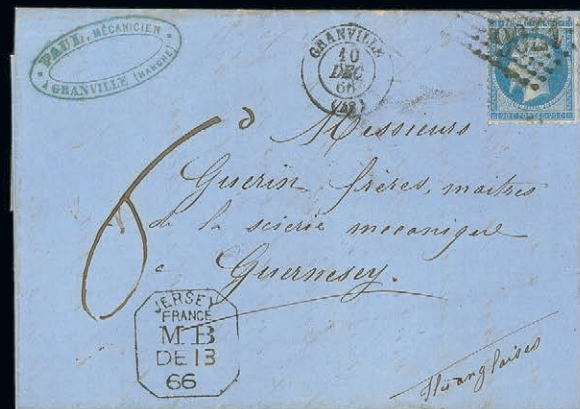 PAUL, MÉCANICIEN
A GRANVILLE (MANCHE)
GRANVILLE
10
DEC
66
(48)
6 d
Messieurs
Guerin frères, maitres
de la scierie mecanique
a Guernesey.
JERSEY
FRANCE
M B
DE 13
66
Iles anglaises
20 C POSTES 20 C